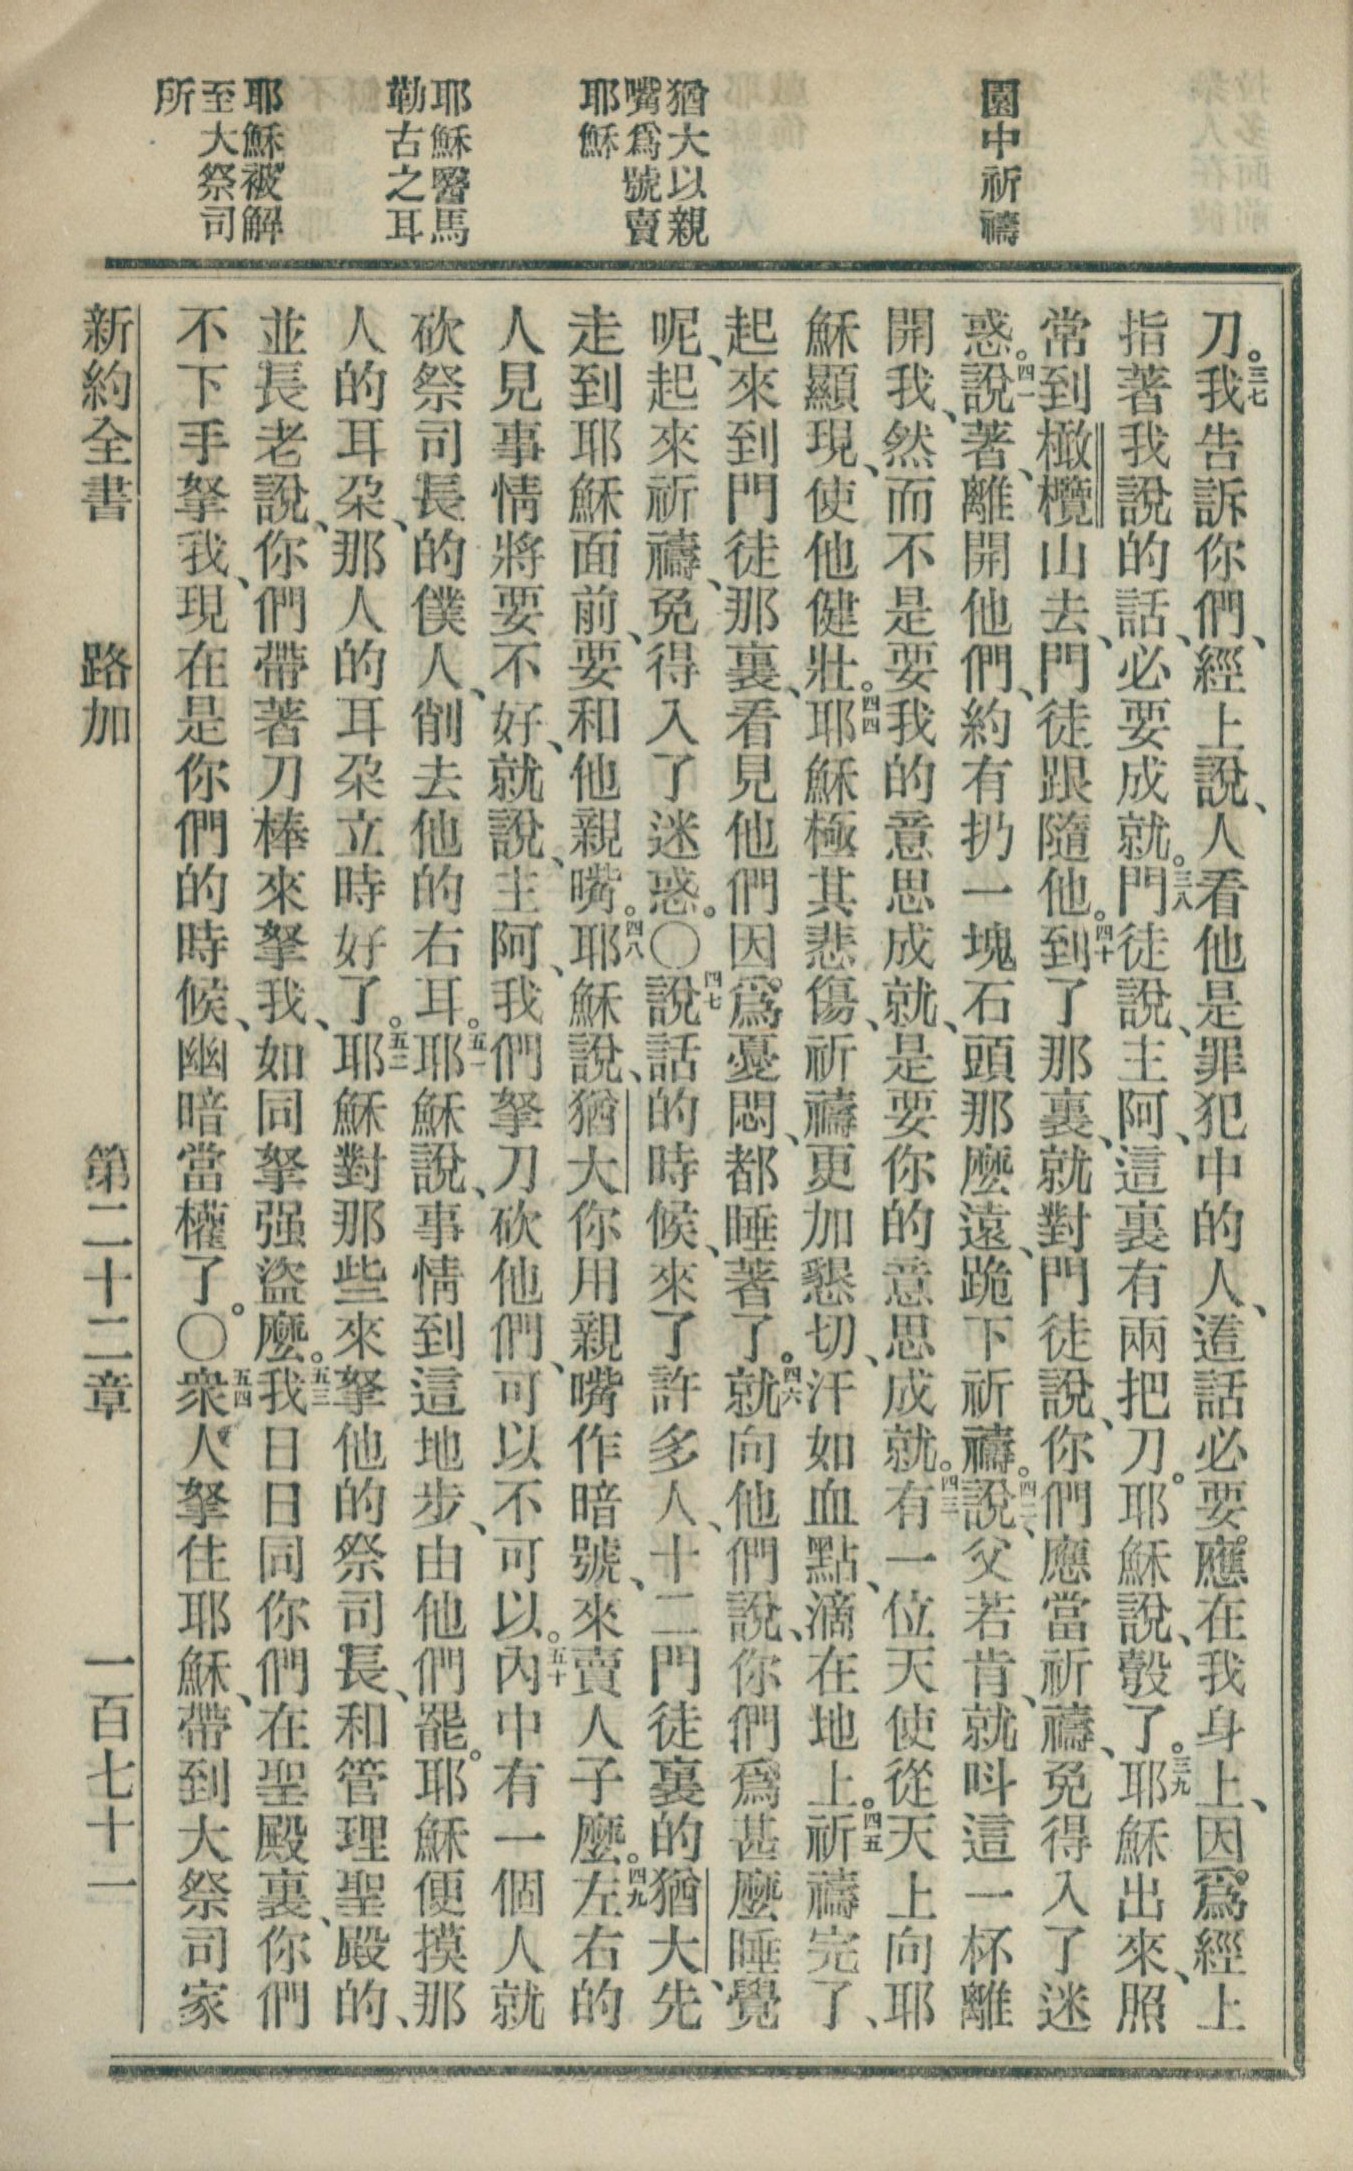 園中祈禱
猶大以親
嘴爲號賣
耶穌
耶穌醫馬
勒古之耳
耶穌被解
至大祭司
所
刀。三七我告訴你們、經上說、人看他是罪犯中的人、這話必要應在我身上、因爲經上
指著我說的話、必要成就。三八門徒說、主阿、這裏有兩把刀。耶穌說、彀了。三九耶穌出來、照
常到橄欖山去、門徒跟隨他。四十到了那裏、就對門徒說、你們應當祈禱、免得入了迷
惑。四一說著、離開他們、約有扔一塊石頭那麽遠、跪下祈禱。四二說、父若肯、就呌這一杯離
開我、然而不是要我的意思成就、是要你的意思成就。四三有一位天使從天上向耶
穌顯現、使他健壯。四四耶穌極其悲傷、祈禱更加懇切、汗如血點、滴在地上。四五祈禱完了、
起來到門徒那裏、看見他們因爲憂悶、都睡著了。四六就向他們說、你們爲甚麽睡覺
呢、起來祈禱、免得入了迷惑。〇四七說話的時候、來了許多人、十二門徒裏的猶大、先
走到耶穌面前、要和他親嘴。四八耶穌說、猶大你用親嘴作暗號、來賣人子麽。四九左右的
人見事情將要不好、就說、主阿、我們拏刀砍他們、可以不可以。五十內中有一個人就
砍祭司長的僕人、削去他的右耳。五一耶穌說、事情到這地步、由他們罷。耶穌便摸那
人的耳朶、那人的耳朶立時好了。五二耶穌對那些來拏他的祭司長、和管理聖殿的、
並長老說、你們帶著刀棒來拏我、如同拏强盜麽。五三我日日同你們在聖殿裏、你們
不下手拏我、現在是你們的時候、幽暗當權了。〇五四衆人拏住耶穌、帶到大祭司家
新約全書　路加　第二十二章　一百七十一